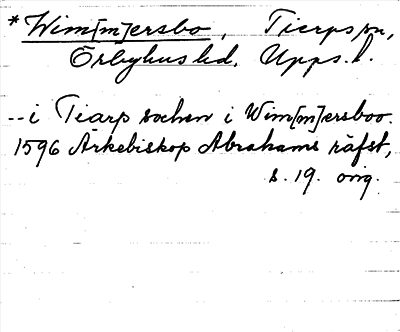 *Wim[m]ersbo, Tierps sn,
Örbyhus hd, Upps. l.
-- i Tiarp sochen i Wim[m]ersboo.
1596 Ärkebiskop Abrahams räfst,
s. 19. orig.